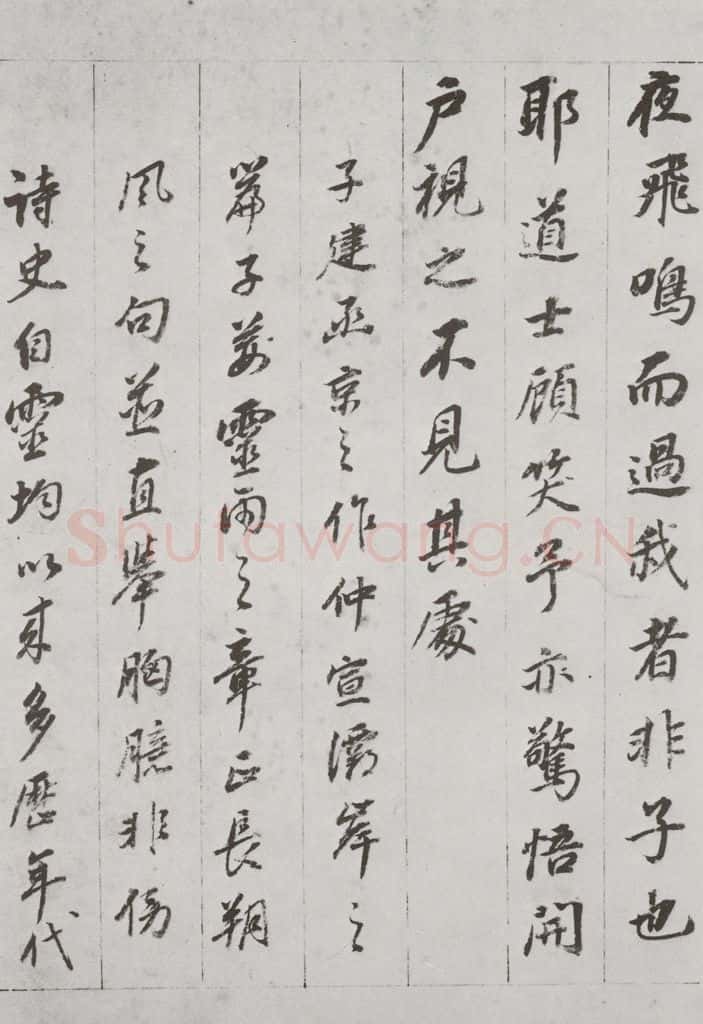 夜飛鳴而過我者非子也
耶道士顧笑予亦驚悟開
戶視之不見其處
子建函京之作仲宣灞岸之
篇子荊靈雨之章正長朔
風之句並直舉胸臆非傍
詩史自靈均以來多歷年代
Shufawang.CN